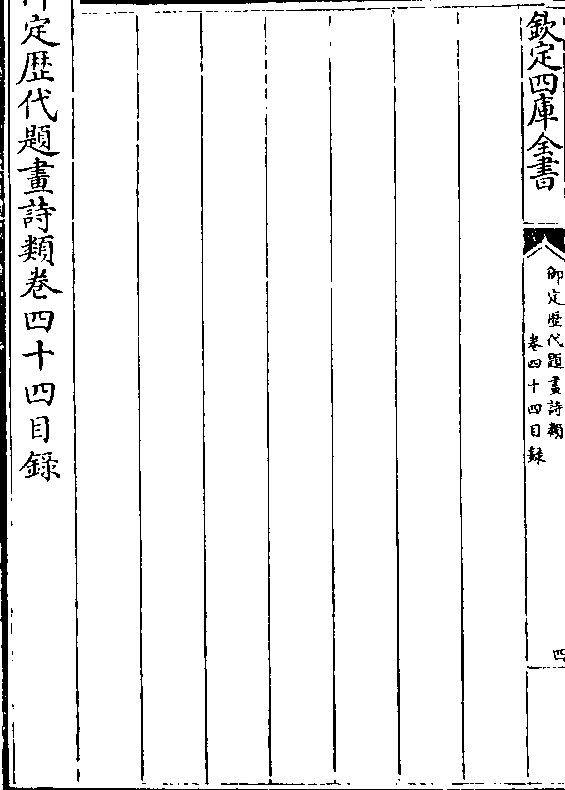 欽定四庫全書
御定歴代題畫詩類
卷四十四目録
四
定歴代題畫詩類卷四十四目録